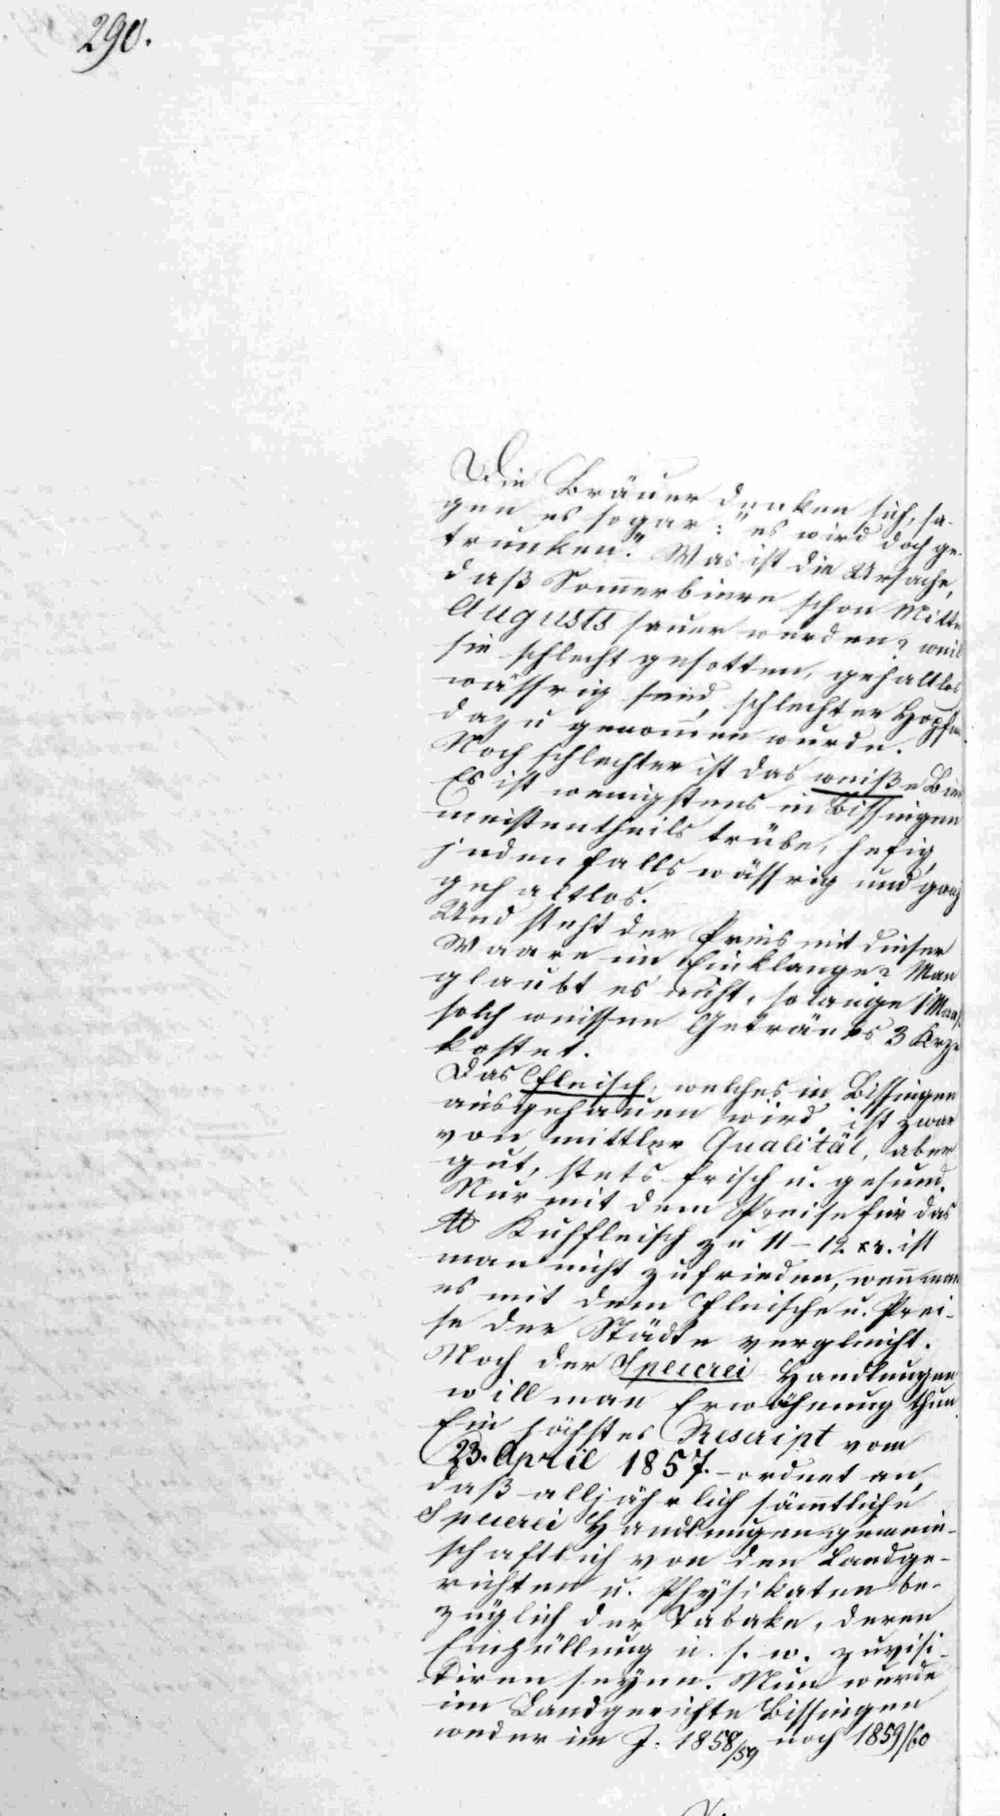 290.
Die Bräuer denken sich, sa-
gen es sogar: "es wird doch ge-
trunken." Was ist die Ursache,
daß Som̄erbiere schon Mitte
Augusts sauer werden? weil
sie schlecht gesotten, gehaltlos
wässrig seind, schlechter Hopfen
dazu genom̄en wurde.
Noch schlechter ist das weiße Bier
Es ist wenigstens in Bissingen
meistentheils trübe, hefig,
jedenfalls wässrig und ganz
gehaltlos.
Und steht der Preis mit dieser
Waare im Einklange? Man
glaubt es nicht, solange 1 Maaß
solch weissen Getränkes 3 Krz.
kostet.
Das Fleisch, welches in Bissingen
ausgehauen wird, ist zwar
von mittler Qualität, aber
gut, stets frisch u. gesund.
Nur mit dem Preise für das
℔ Kuhfleisch zu 11-12. xr. ist
man nicht zufrieden, wen̄ man
es mit dem Fleische u. Prei-
se der Städte vergleicht.
Noch der Specerei Handlungen
will man Erwähnung thun.
Ein höchstes Rescript vom
23. April 1857.- ordnet an,
daß alljährlich säm̄tliche
Specerei Handlungen gemein-
schaftlich von den Landge-
richten u. Physikaten be-
züglich der Tabake, deren
Einhüllung u. s. w. zu visi-
tiren seyen. Nun wurde
im Landgerichte Bissingen
weder im J. 1858/59 noch 1859/60